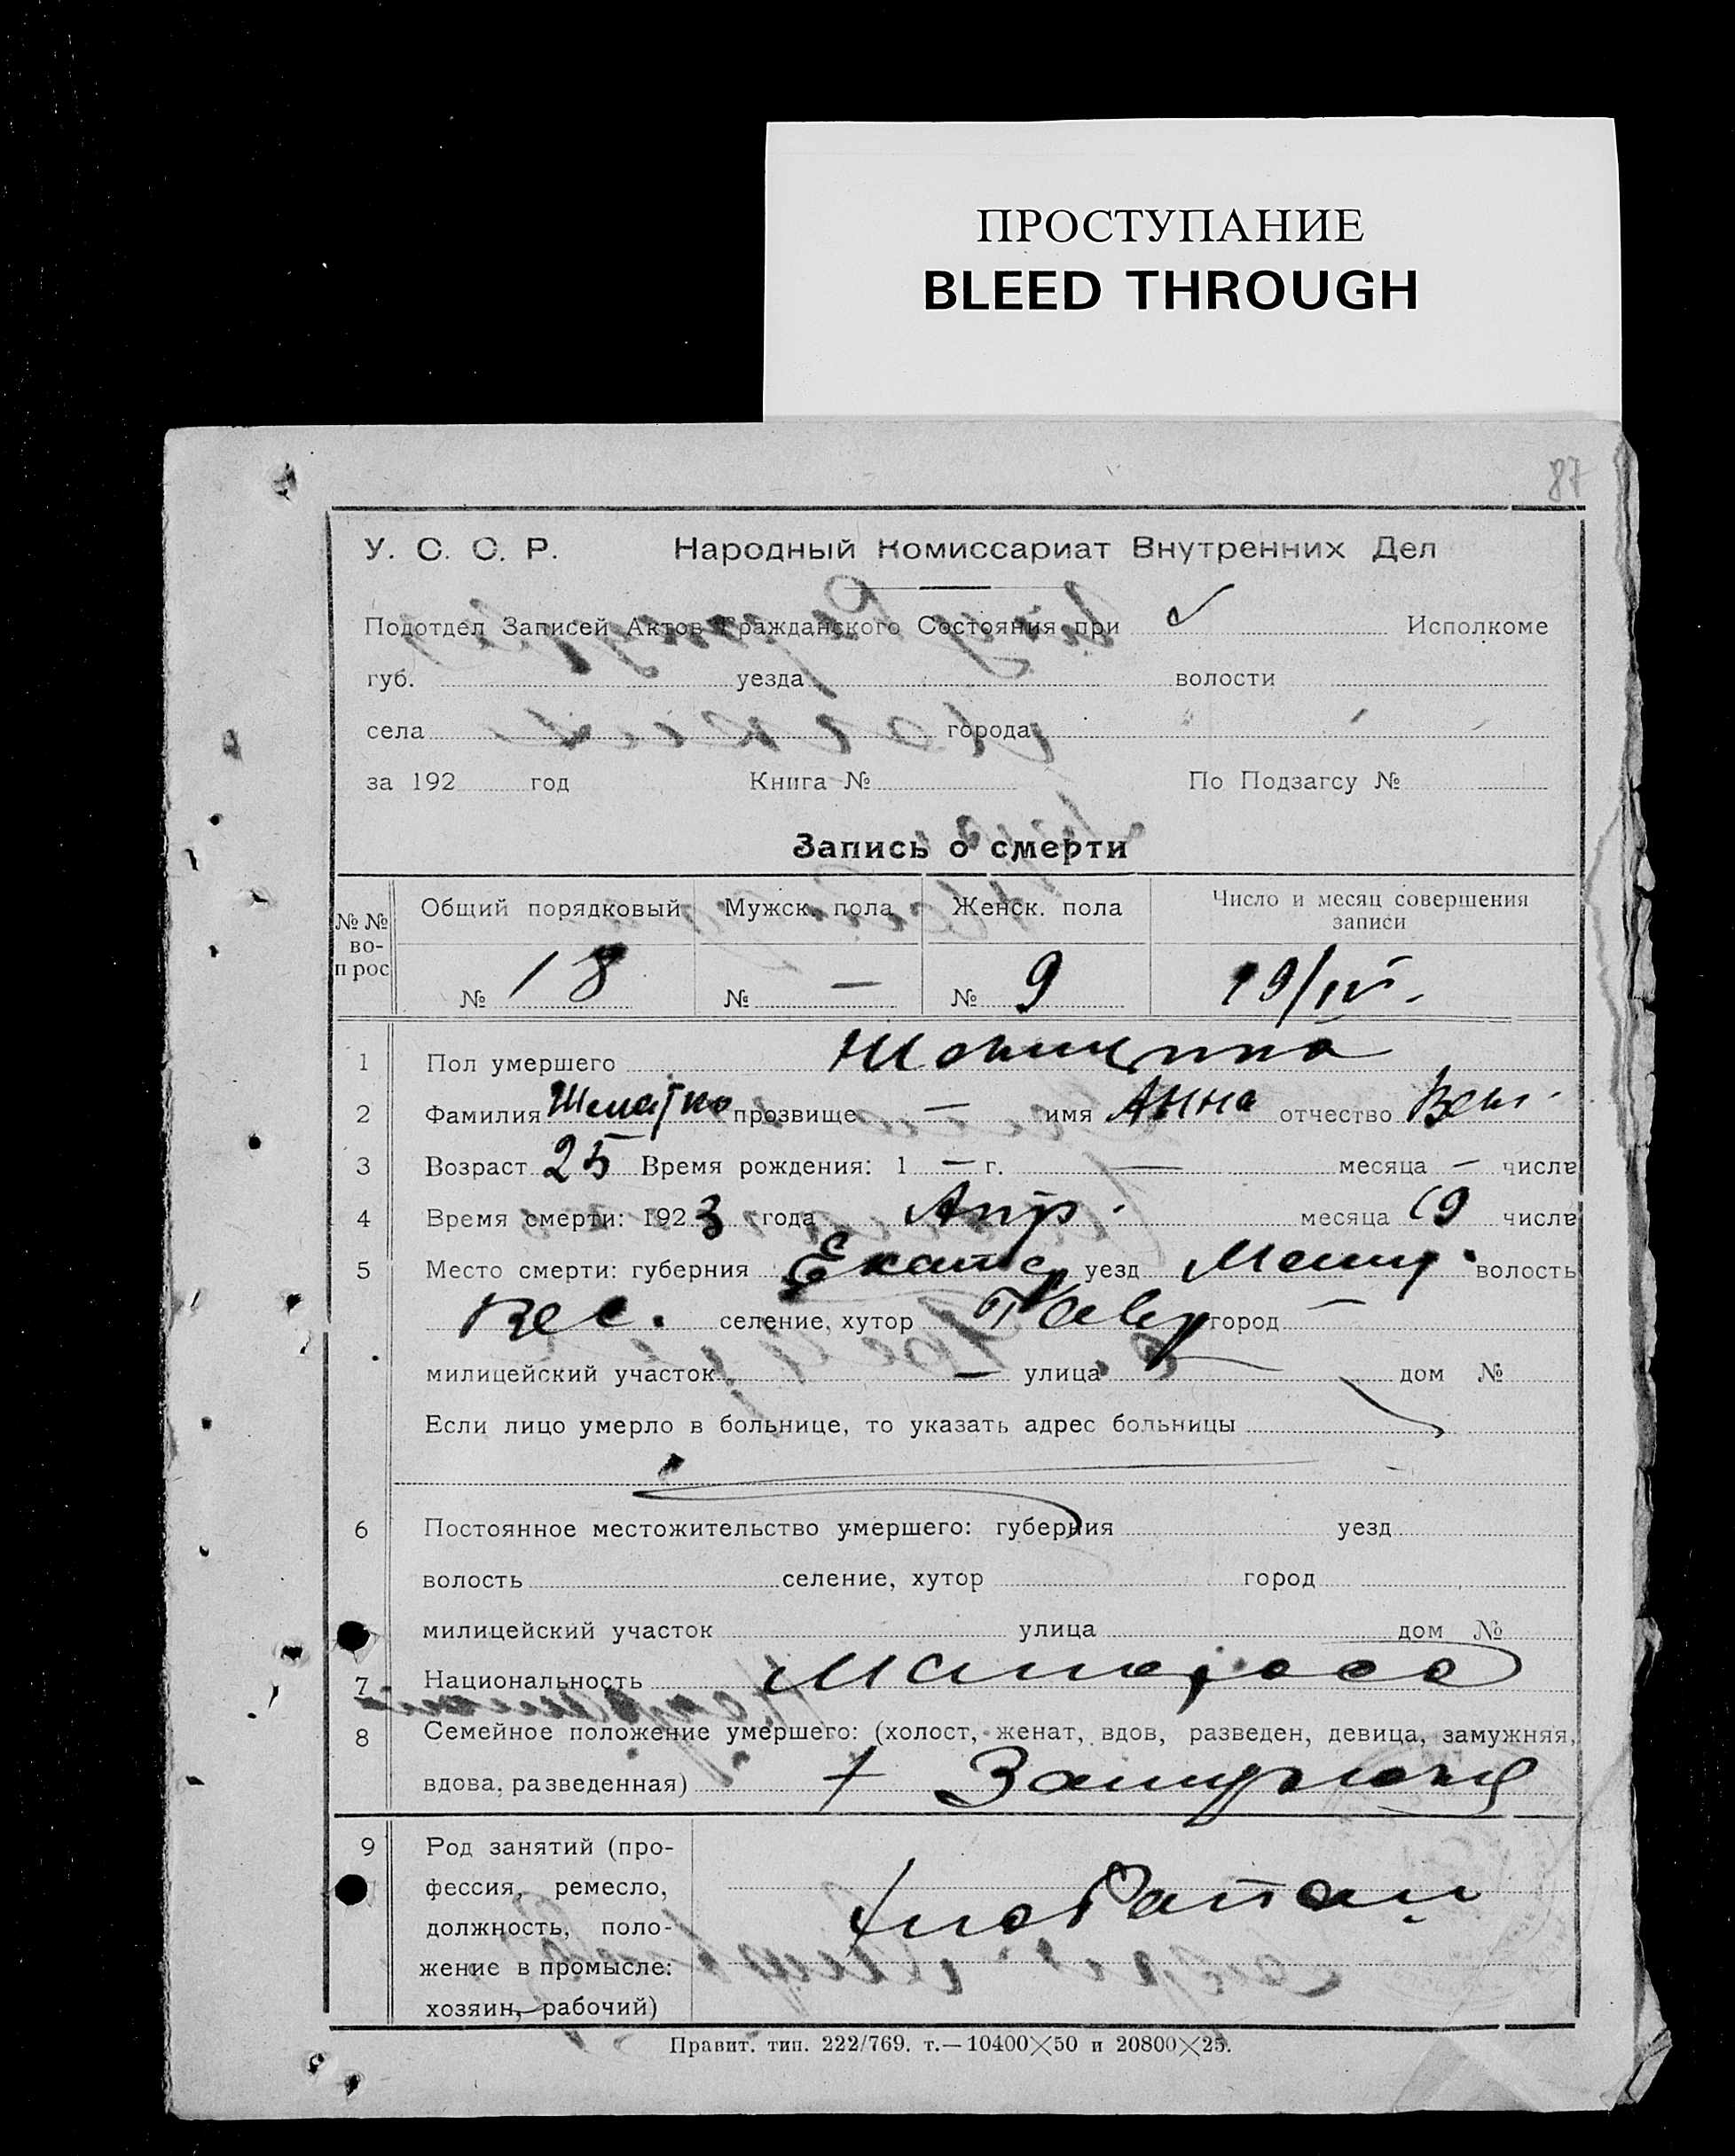 ПРОСТУПАНИЕ
BLEED THROUGH
87
У. С. С. Р. Народный Комиссариат Внутренних Дел
Подотдел Записей Актов Гражданского Состояния при Исполкоме
губ. уезда волости
села города
за 192 год Книга № По Подзагсу №
Запись о смерти
№ № во-прос Общий порядковый Мужск. пола Женск. пола Число и месяц совершения записи
№ 18 № — № 9 19/IV.
1 Пол умершего
2 Фамилия прозвище — имя Анна отчество
3 Возраст 25 Время рождения: 1 — г. — месяца — числа
4 Время смерти: 1923 года Апр. месяца 19 числа
5 Место смерти: губерния Екатер уезд волость
Вес. селение, хутор Гавр город —
милицейский участок — улица дом №
Если лицо умерло в больнице, то указать адрес больницы
6 Постоянное местожительство умершего: губерния уезд
волость селение, хутор город
милицейский участок улица дом №
7 Национальность
8 Семейное положение умершего: (холост, женат, вдов, разведен, девица, замужняя,
вдова, разведенная) Замужняя
9 Род занятий (про-
фессия, ремесло,
должность, поло-
жение в промысле:
хозяин, рабочий)
Правит. тип. 222/769. т.—10400×50 и 20800×25.